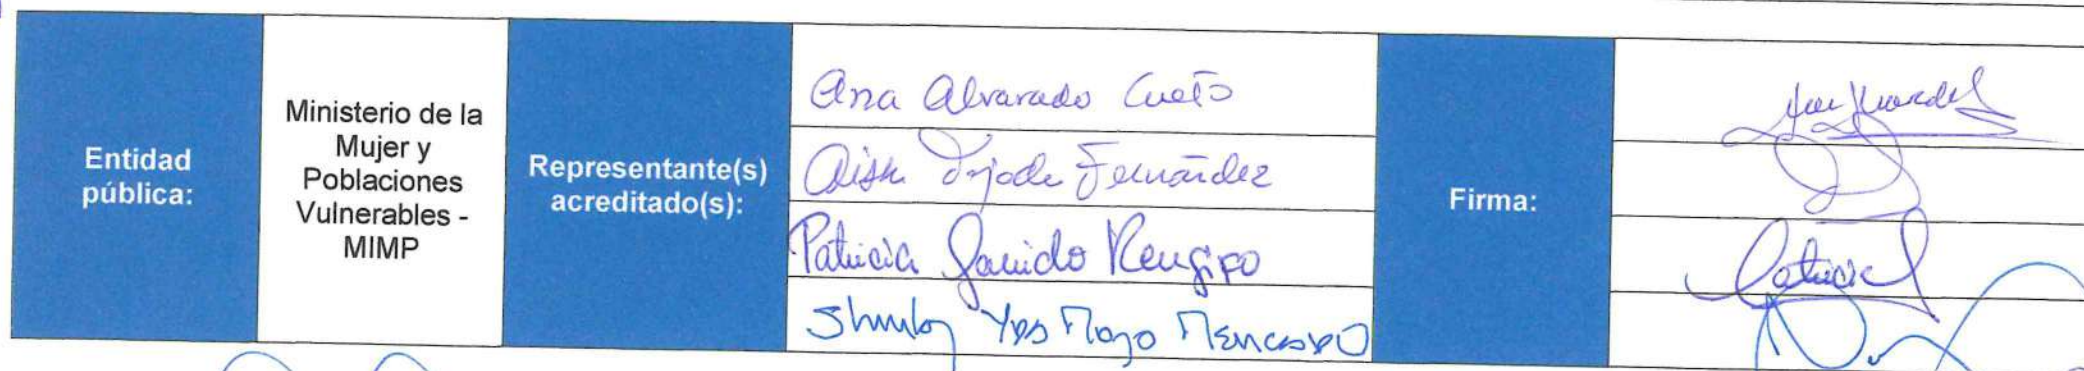 Entidad
pública:
Ministerio de la
Mujer y
Poblaciones
Vulnerables -
MIMP
Representante(s)
acreditado(s):
Ana Alvarado Cueto
Fernández
Patricia Garrido Rengifo
Firma:
Patricia